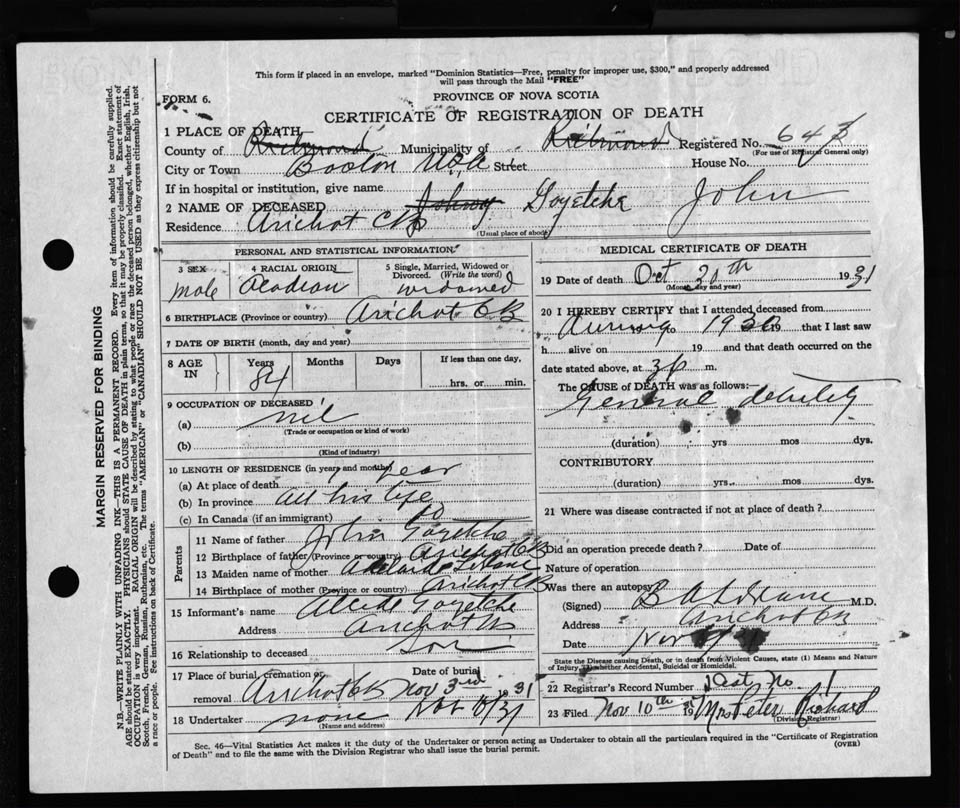 This form if placed in an envelope, marked "Dominion Statistics—Free, penalty for improper use, $300," and properly addressed
will pass through the Mail "FREE"
FORM 6.
PROVINCE OF NOVA SCOTIA
CERTIFICATE OF REGISTRATION OF DEATH
1 PLACE OF DEATH
County of Richmond Municipality of Richmond Registered No. 64
(For use of Registrar General only)
City or Town Boston U.S.A Street House No.
If in hospital or institution, give name
2 NAME OF DECEASED Johnny Goyetche John
Residence Arichat C B
(Usual place of abode)
PERSONAL AND STATISTICAL INFORMATION.
3 SEX
male
4 RACIAL ORIGIN
Acadian
5 Single, Married, Widowed or
Divorced. (Write the word)
widowed
6 BIRTHPLACE (Province or country) Arichat CB
7 DATE OF BIRTH (month, day and year)
8 AGE
IN
Years Months Days If less than one day,
84 hrs. or min.
9 OCCUPATION OF DECEASED
(a) nil
(Trade or occupation or kind of work)
(b)
(Kind of industry)
10 LENGTH OF RESIDENCE (in years and months)
(a) At place of death year
(b) In province all his life
(c) In Canada (if an immigrant) do
Parents
11 Name of father John Goyetche
12 Birthplace of father (Province or country) Arichat CB
13 Maiden name of mother
14 Birthplace of mother (Province or country) Arichat CB
15 Informant's name Alcide Goyetche
Address Arichat
16 Relationship to deceased son
17 Place of burial, cremation or
removal Arichat CB
Date of burial
Nov 3rd 31
18 Undertaker none
(Name and address)
MEDICAL CERTIFICATE OF DEATH
19 Date of death Oct 30th 1931
(Month, day and year)
20 I HEREBY CERTIFY that I attended deceased from
During to 1930 19 that I last saw
h alive on 19 and that death occurred on the
date stated above, at m.
The CAUSE of DEATH was as follows:—
General debility
(duration) yrs mos dys.
CONTRIBUTORY
(duration) yrs. mos dys.
21 Where was disease contracted if not at place of death?
Did an operation precede death? Date of
Nature of operation
Was there an autopsy
(Signed) B A LeBlanc M.D.
Address Arichat CB
Date Nov
State the Disease causing Death, or in death from Violent Causes, state (1) Means and Nature
of Injury, (2) whether Accidental, Suicidal or Homicidal.
22 Registrar's Record Number 1
23 Filed Nov 10th 19 Mrs Peter Richard
(Division Registrar)
Sec. 46—Vital Statistics Act makes it the duty of the Undertaker or person acting as Undertaker to obtain all the particulars required in the "Certificate of Registration
of Death" and to file the same with the Division Registrar who shall issue the burial permit.
(OVER)
MARGIN RESERVED FOR BINDING
N.B.—WRITE PLAINLY WITH UNFADING INK—THIS IS A PERMANENT RECORD. Every item of information should be carefully supplied.
AGE should be stated EXACTLY. PHYSICIANS should STATE CAUSE OF DEATH in plain terms, so that it may be properly classified. Exact statement of
OCCUPATION is very important. RACIAL ORIGIN will be described by stating to what people or race the deceased person belonged, whether English, Irish,
Scotch, French, German, Russian, Ruthenian, etc. The terms "AMERICAN" or "CANADIAN" SHOULD NOT BE USED as they express citizenship but not
a race or people. See instructions on back of Certificate.